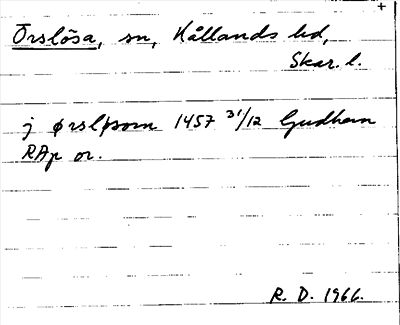 +
Örslösa, sn, Kållands hd,
Skar. l.
j ørsløsom 1457 31/12 Gudhem
RAp or.
R. D. 1966.